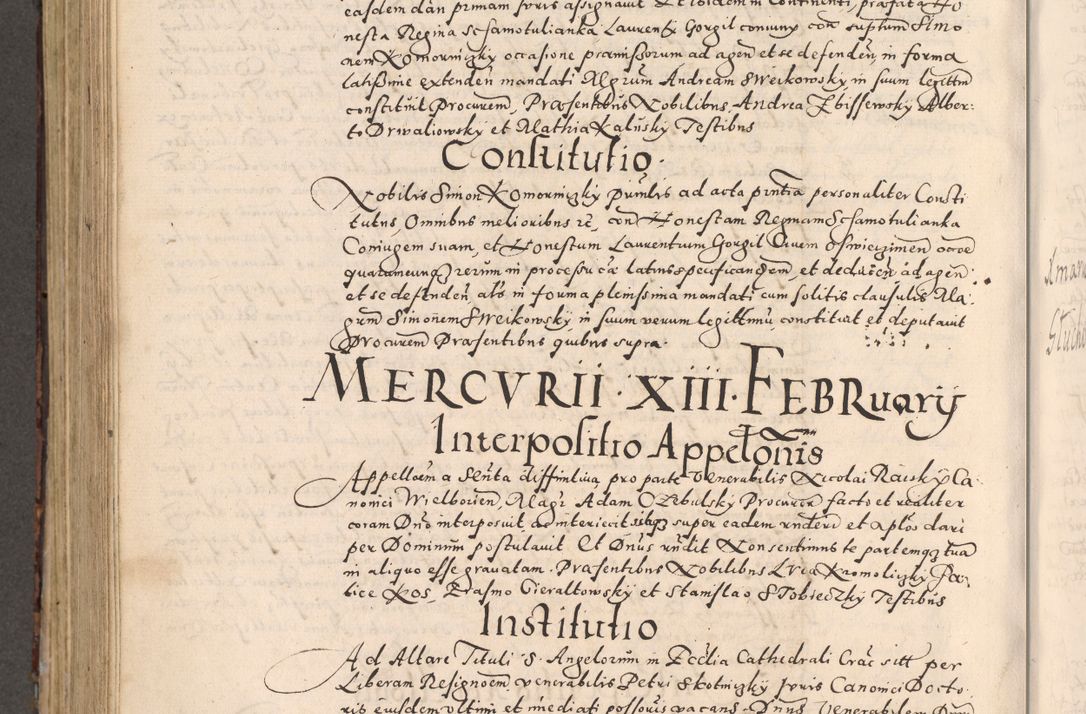 easdem dan primam Juris assignavit Et ibidem in Continenti præfata Ho
nesta Regina Schamotulianka Laurenty Gorgil coniunx con suptum Simo
nem Komorniczky occasione præmissorum ad agen et se defenden, in forma
latissime extenden mandati Mgrum Andream Sweikowsky in suum legittm
constituit Procurem, Præsentibus Nobilibus Andrea Zbissewsky Alber-
to Drwaliowsky et Mathia Kalusky Testibus
Constitutio.
Nobilis Simon Komorniczky pnmles ad acta pintia personaliter Consti
tutus, Omnibus melioribus rc, con Honestam Regniam Schamotulianka
Coniugem suam, et Honestum Laurentium Gorgil Civem Oswieczimen occoe
quarumcunq rerum in processu ca latius specificandem, et deducen ad agen
et se defenden, als in forma plenissima mandati cum solitis clausulis Ma-
grm Simonem Sweikowsky in suum verum legittimu constituit et deputavit
Procurem Præsentibus quibus supra.
MERCVRII . XIII . FEBRuarij
Interpositio Appelonis
Appelloem a Senta diffinitiva pro parte Venerabilis Nicolai Raisky Ca-
nonici Wielborien, Magr Adam Czebulsky Procurer facto et realiter
coram Dno interposuit ac interiecit sibiq super eadem rnderi et aplos dari
per Dominum postulavit Et Dnus rndit Non sentimus te partemqz tua
in aliquo esse gravatam. Præsentibus Nobilibus Luca Kromoliczky Ga-
lice Kos, Erasmo Gieraltowsky et Stanislao Stobieczky Testibus
Institutio
Ad Altare Tituli S. Angelorum in Ecclia Cathedrali Crac sitt per
Liberam Resignoem, venerabilis Petri Skotniczky Juris Canonici Docto-
ris eiusdem ultimi et immediati possoris vacans. Dnus Venerabilem Dum